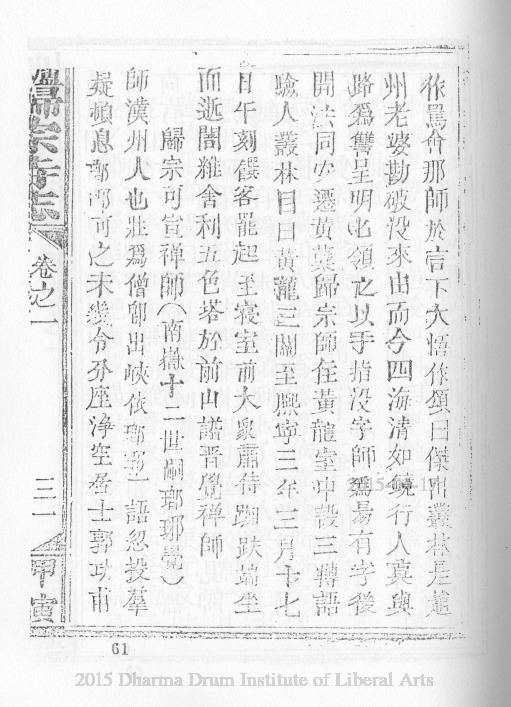 作罵會那師於言下大悟作頌曰傑出叢林是趙
州老婆勘破沒來由而今四海清如鏡行人莫與
路爲讐呈明明領之以手指沒字師爲易有字後
開法同安遷黃蘗歸宗師在黃龍室中設三轉語
驗人叢林目曰黃龍三關至熙寧二年三月十七
日午刻饌客罷起至寢室前大衆肅侍跏趺端坐
而逝闍維舍利五色塔於前山諡普覺禪師
歸宗可宣禪師(南嶽十二世嗣瑯琊覺)
師漢州人也壯爲僧卽出峽依瑯琊一語忽投羣
疑頓息瑯琊可之未幾令分座淨空居士郭功甫
歸宗寺志
卷之一
三一
甲寅
61
2015 Dharma Drum Institute of Liberal Arts